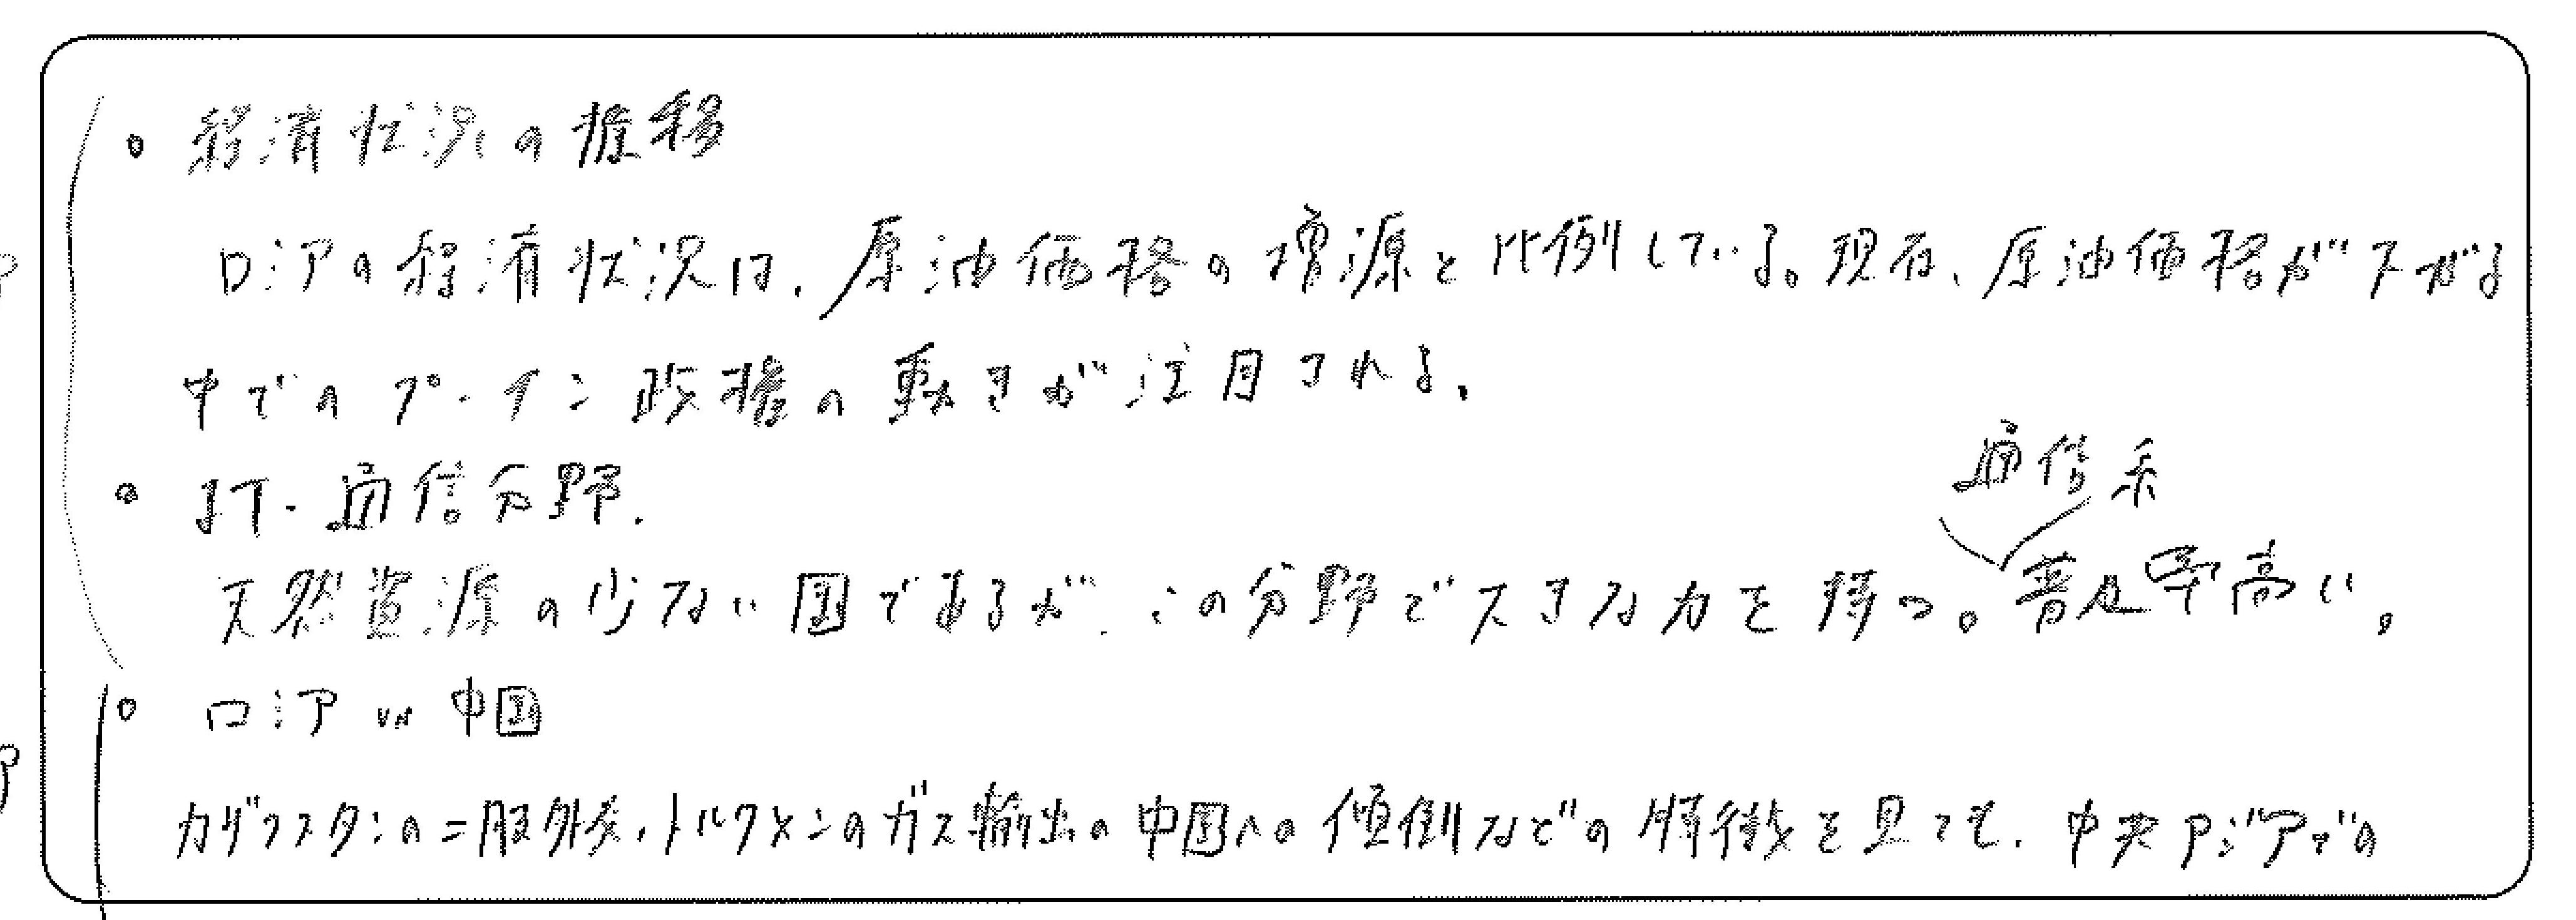 。経済状況の推移
ロシアの経済状況は、原油価格の増源と比例している。現在、原油価格が下がる
中でのプーチン政権の動きが注目される。
。IT・通信分野.
通信系
天然資源の少ない国であるが、この分野で大きな力を持つ。普及率高い。
。ロシア vs 中国
カザフスタンの二股外交、トルクメンのガス輸出の中国への傾倒などの特徴を見ても、中央アジアでの